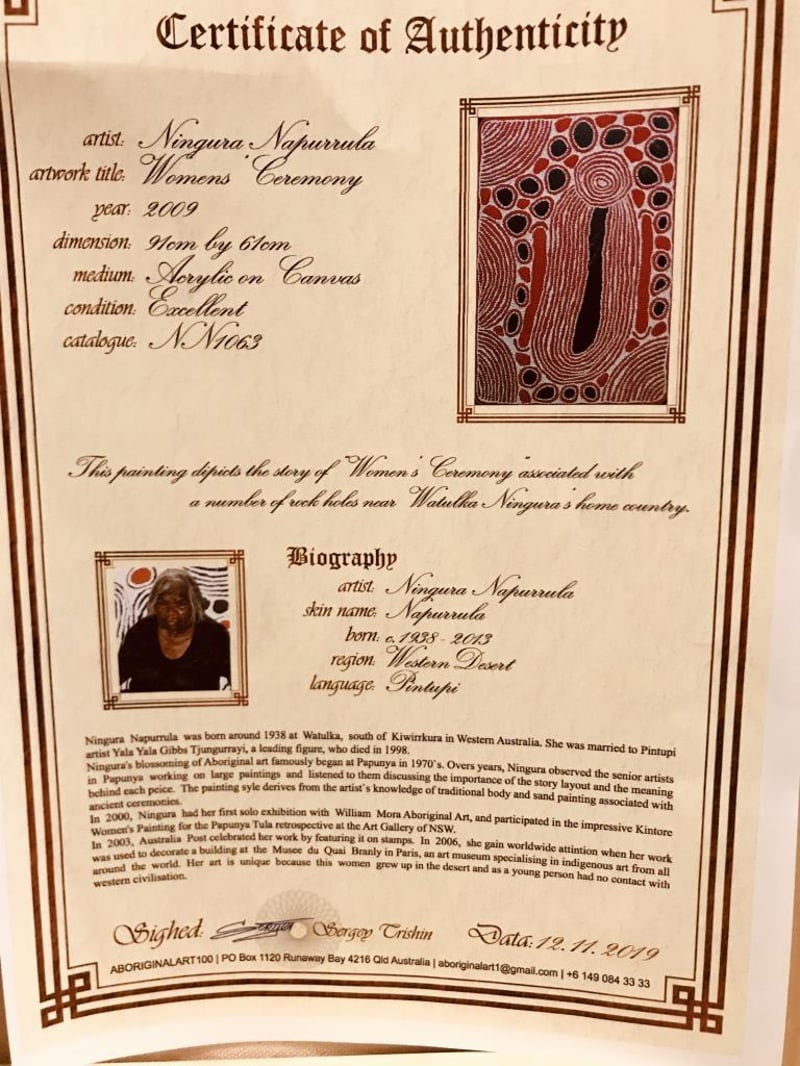 Certificate of Authenticity
artist: Ningura Napurrula
artwork title: Womens' Ceremony
year: 2009
dimension: 91cm by 61cm
medium: Acrylic on Canvas
condition: Excellent
catalogue: NN1063
This painting dipicts the story of "Women's Ceremony" associated with
a number of rock holes near Watulka Ningura's home country.
Biography
artist: Ningura Napurrula
skin name: Napurrula
born: c. 1938 - 2013
region: Western Desert
language: Pintupi
Ningura Napurrula was born around 1938 at Watulka, south of Kiwirrkura in Western Australia. She was married to Pintupi
artist Yala Yala Gibbs Tjungurrayi, a leading figure, who died in 1998.
Ningura's blossoming of Aboriginal art famously began at Papunya in 1970's. Overs years, Ningura observed the senior artists
in Papunya working on large paintings and listened to them discussing the importance of the story layout and the meaning
behind each peice. The painting syle derives from the artist's knowledge of traditional body and sand painting associated with
ancient ceremonies.
In 2000, Ningura had her first solo exhibition with William Mora Aboriginal Art, and participated in the impressive Kintore
Women's Painting for the Papunya Tula retrospective at the Art Gallery of NSW.
In 2003, Australia Post celebrated her work by featuring it on stamps. In 2006, she gain worldwide attintion when her work
was used to decorate a building at the Musee du Quai Branly in Paris, an art museum specialising in indigenous art from all
around the world. Her art is unique because this women grew up in the desert and as a young person had no contact with
western civilisation.
Sighed: Sergey Trishin Data: 12.11.2019
ABORIGINALART100 | PO Box 1120 Runaway Bay 4216 Qld Australia | aboriginalart1@gmail.com | +6 149 084 33 33